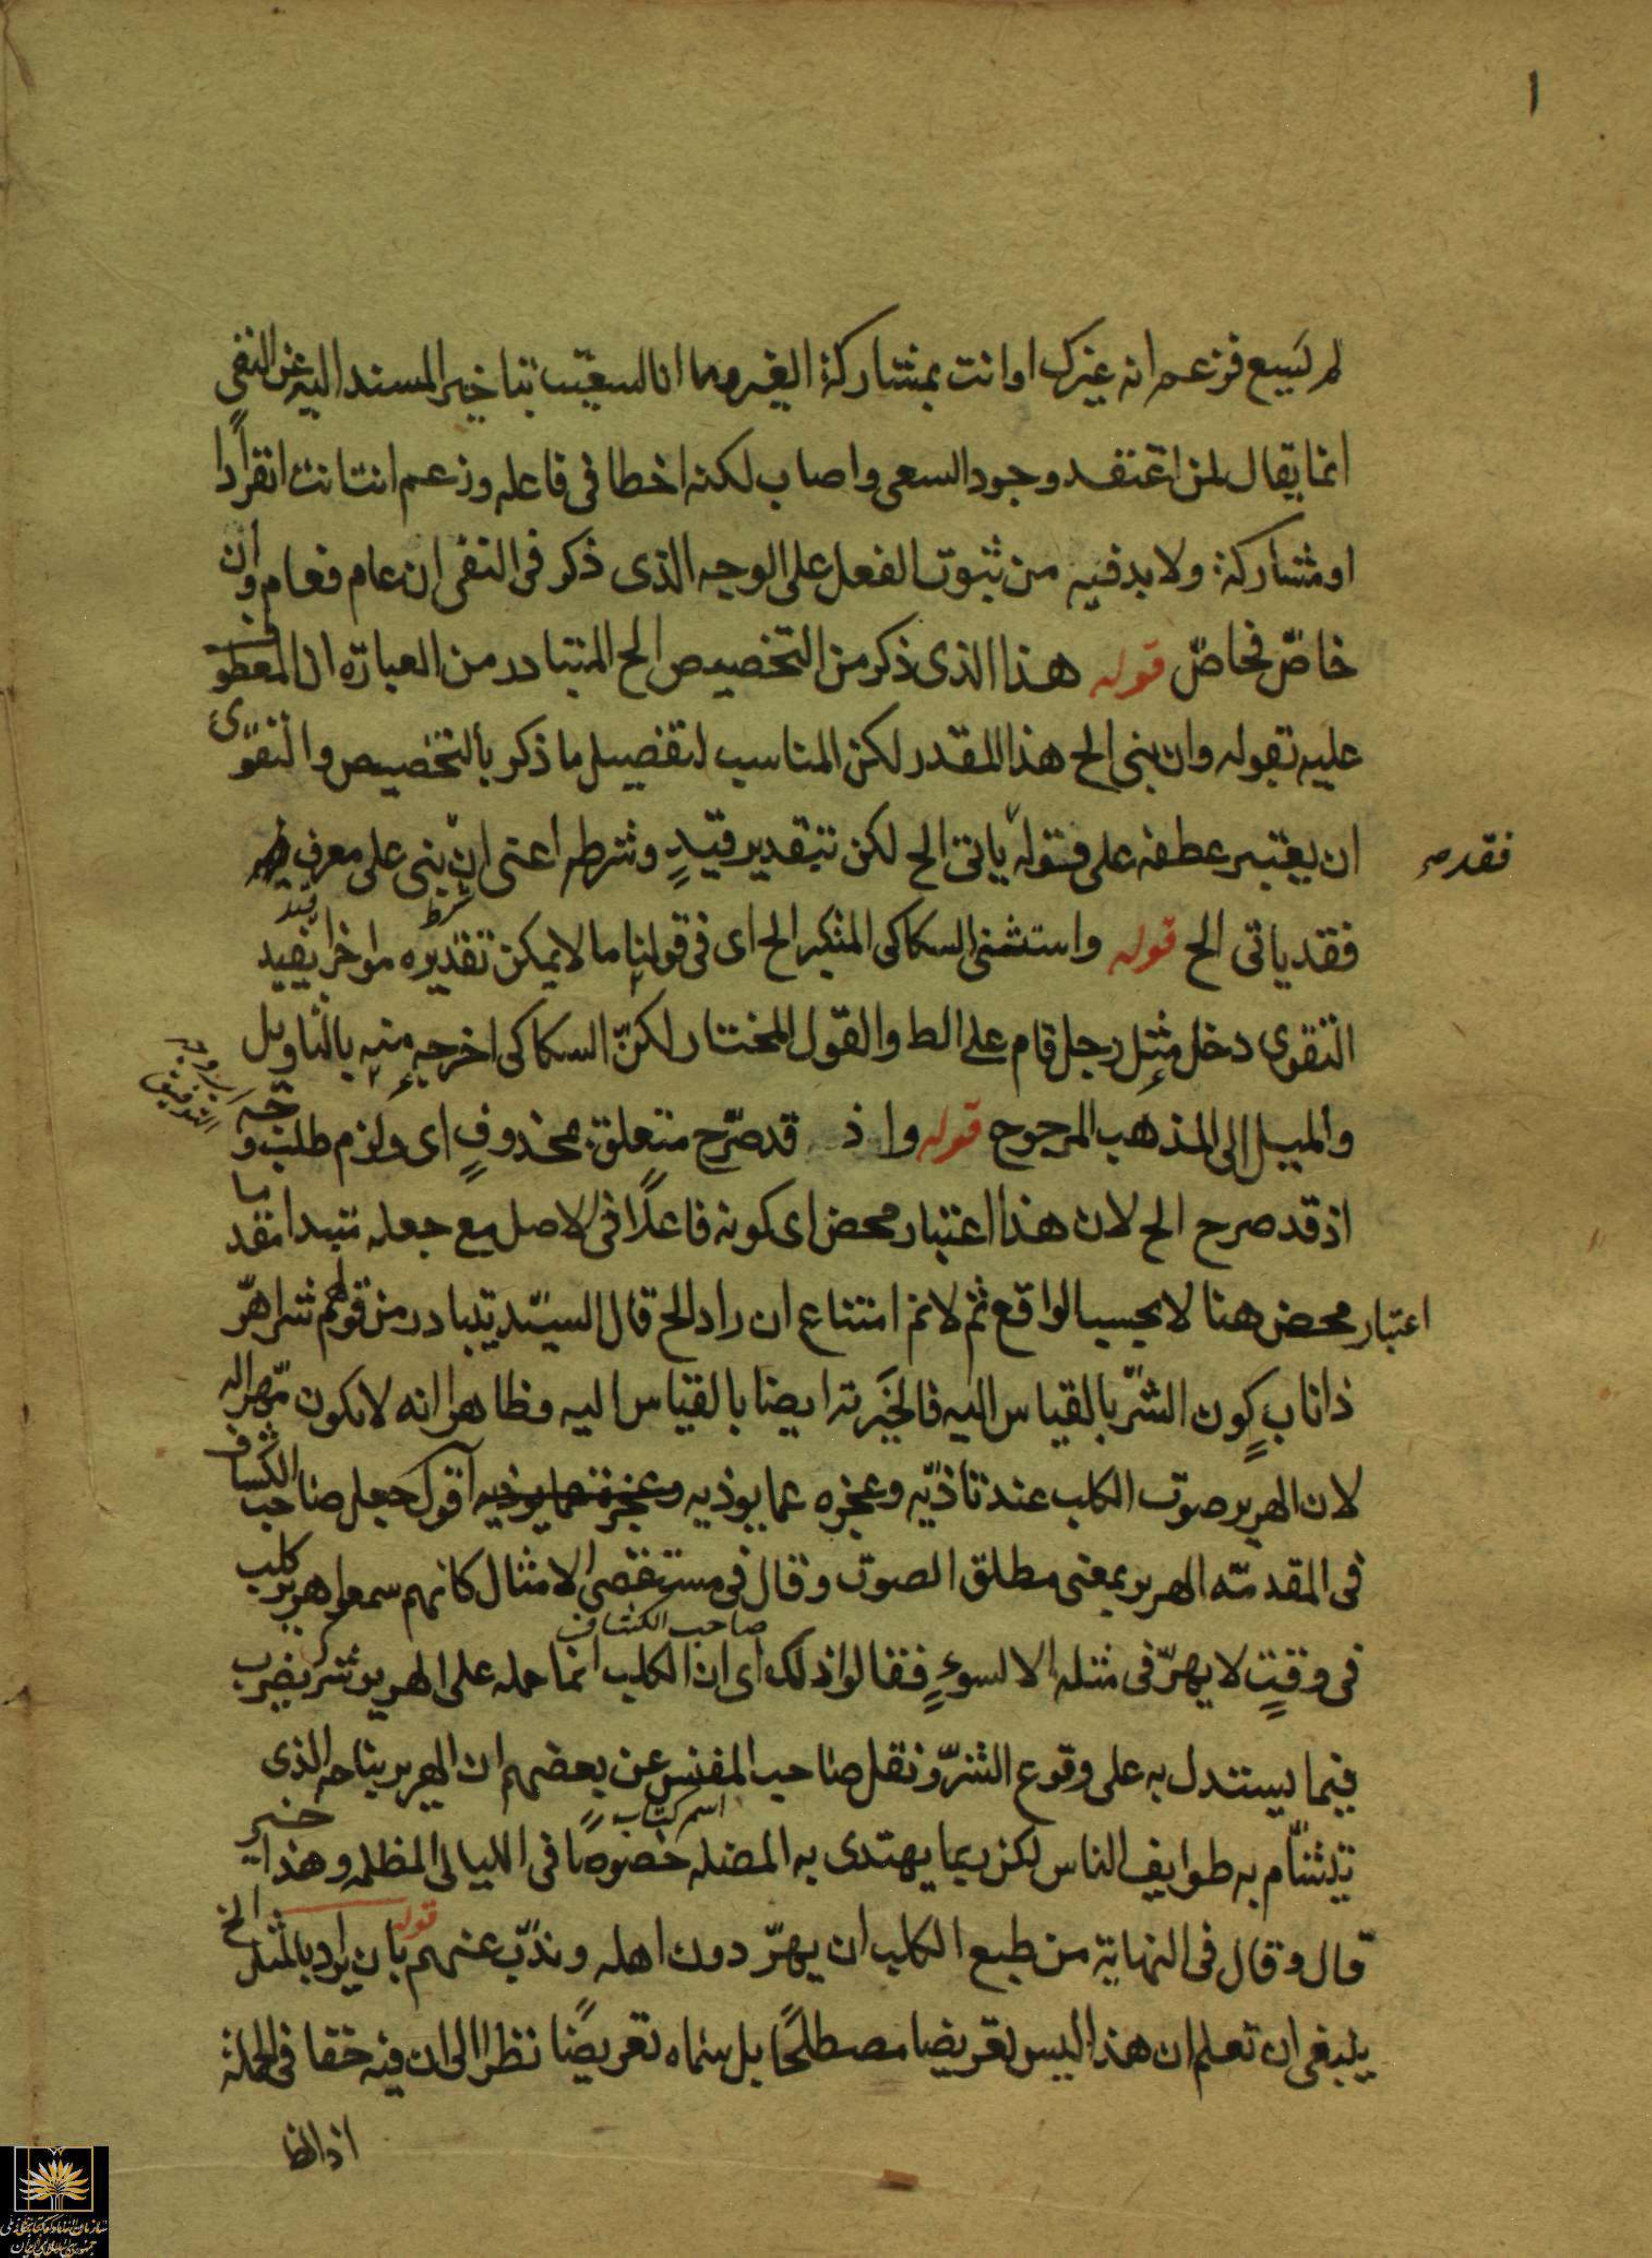 ١
لم يسع فزعم انه غيرك او انت بمشاركة الغير وما انا السعيت بتاخير المسند اليه عن النفى
انما يقال لمن اعتقد وجود السعى واصاب لكنه اخطا فى فاعله وزعم انت انت انفرادا
او مشاركة ولا بد فيه من ثبوت الفعل على الوجه الذى ذكر فى النفى ان عام فعام وان
خاصّ فخاصّ قوله هذا الذى ذكر من التخصيص الخ المتبادر من العبارة ان المعطو
عليه تقوله وان بنى الخ هذا المقدر لكن المناسب لتفصيل ما ذكر بالتخصيص والتقوى
ان يعتبر عطفه على قوله ياتى الخ لكن بتقدير قيدٍ وشرط اعنى ان بنى على معرف
فقد
فقد ياتى الخ قوله واستثنى السكاكى المنكر الخ اى فى قولنا ما لا يمكن تقديره مواخرا يفيد
شرط
قيد
التقوى دخل مثل رجل قام على الط والقول المختار لكنّ السكاكى اخرجه منه بالتاويل
والميل الى المذهب المرجوح قوله واذ قد صرّح متعلق بمحذوفٍ اى ولزم طلب وجه
التوفيق
اذ قد صرح الخ لان هذا اعتبار محض اى كونه فاعلًا فى الاصل مع جعله مبتدا
اعتبار محض هنا لا بحسب الواقع ثم لا نم امتناع ان راد الخ قال السيّد يتبادر من قولهم شر اهرّ
ذا ناب كون الشرّ بالقياس اليه فالخيرية ايضا بالقياس اليه وظاهر انه لا يكون مهرا له
لان الهرير صوت الكلب عند تاذيّه وعجزه عما يوذيه وعجزه عما يوذيه اقول جعل صاحب الكشاف
فى المقدمة الهرير بمعنى مطلق الصوت وقال فى مستقصى الامثال كانهم سمعوا هرير كلب
فى وقتٍ لا يهرّ فى مثله الا لسوءٍ فقالوا ذلك اى ان الكلب انما حمله على الهرير شر يضرب
صاحب الكشاف
فيما يستدل به على وقوع الشرّ ونقل صاحب عن بعضهم ان الهرير بناحه الذى
اسم كتاب
يتشأم به طوايف الناس لكن ربما يهتدى به المضله خصوصًا فى الليالى المظلمه وهذا خير
قال وقال فى النهاية من طبع الكلب ان يهرّ دون اهله ويذبّ عنهم قوله بان يراد بالمثل الخ
ينبغى ان تعلم ان هذا ليس تعريضا مصطلحًا بل سماه تعريضًا نظرا الى ان فيه خفا فى الجملة
اذ الظا